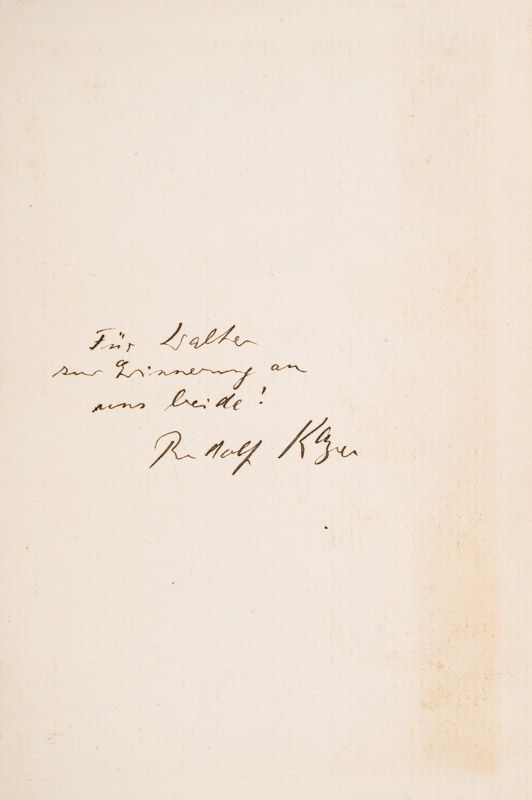 Für Walter
zur Erinnerung an
uns beide!
Rudolf Kayser